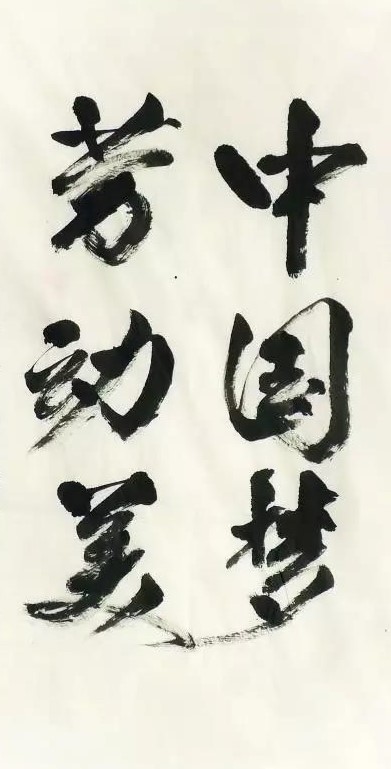 中国梦
劳动美